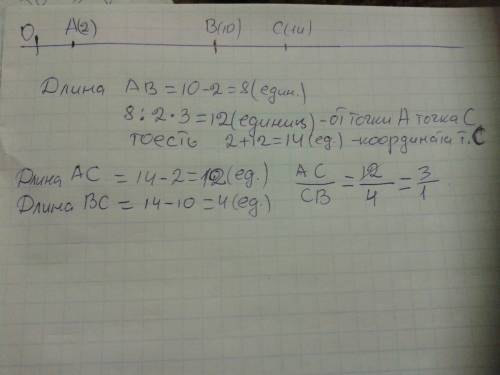 O A(2) B(10) C(14)
Длина AB = 10-2=8(един.)
8:2·3=12(единиц)-от точки A точка C,
тоесть 2+12=14(ед.)-координата т.C
Длина AC = 14-2=12(ед.) AC/CB = 12/4 = 3/1
Длина BC = 14-10=4(ед.)